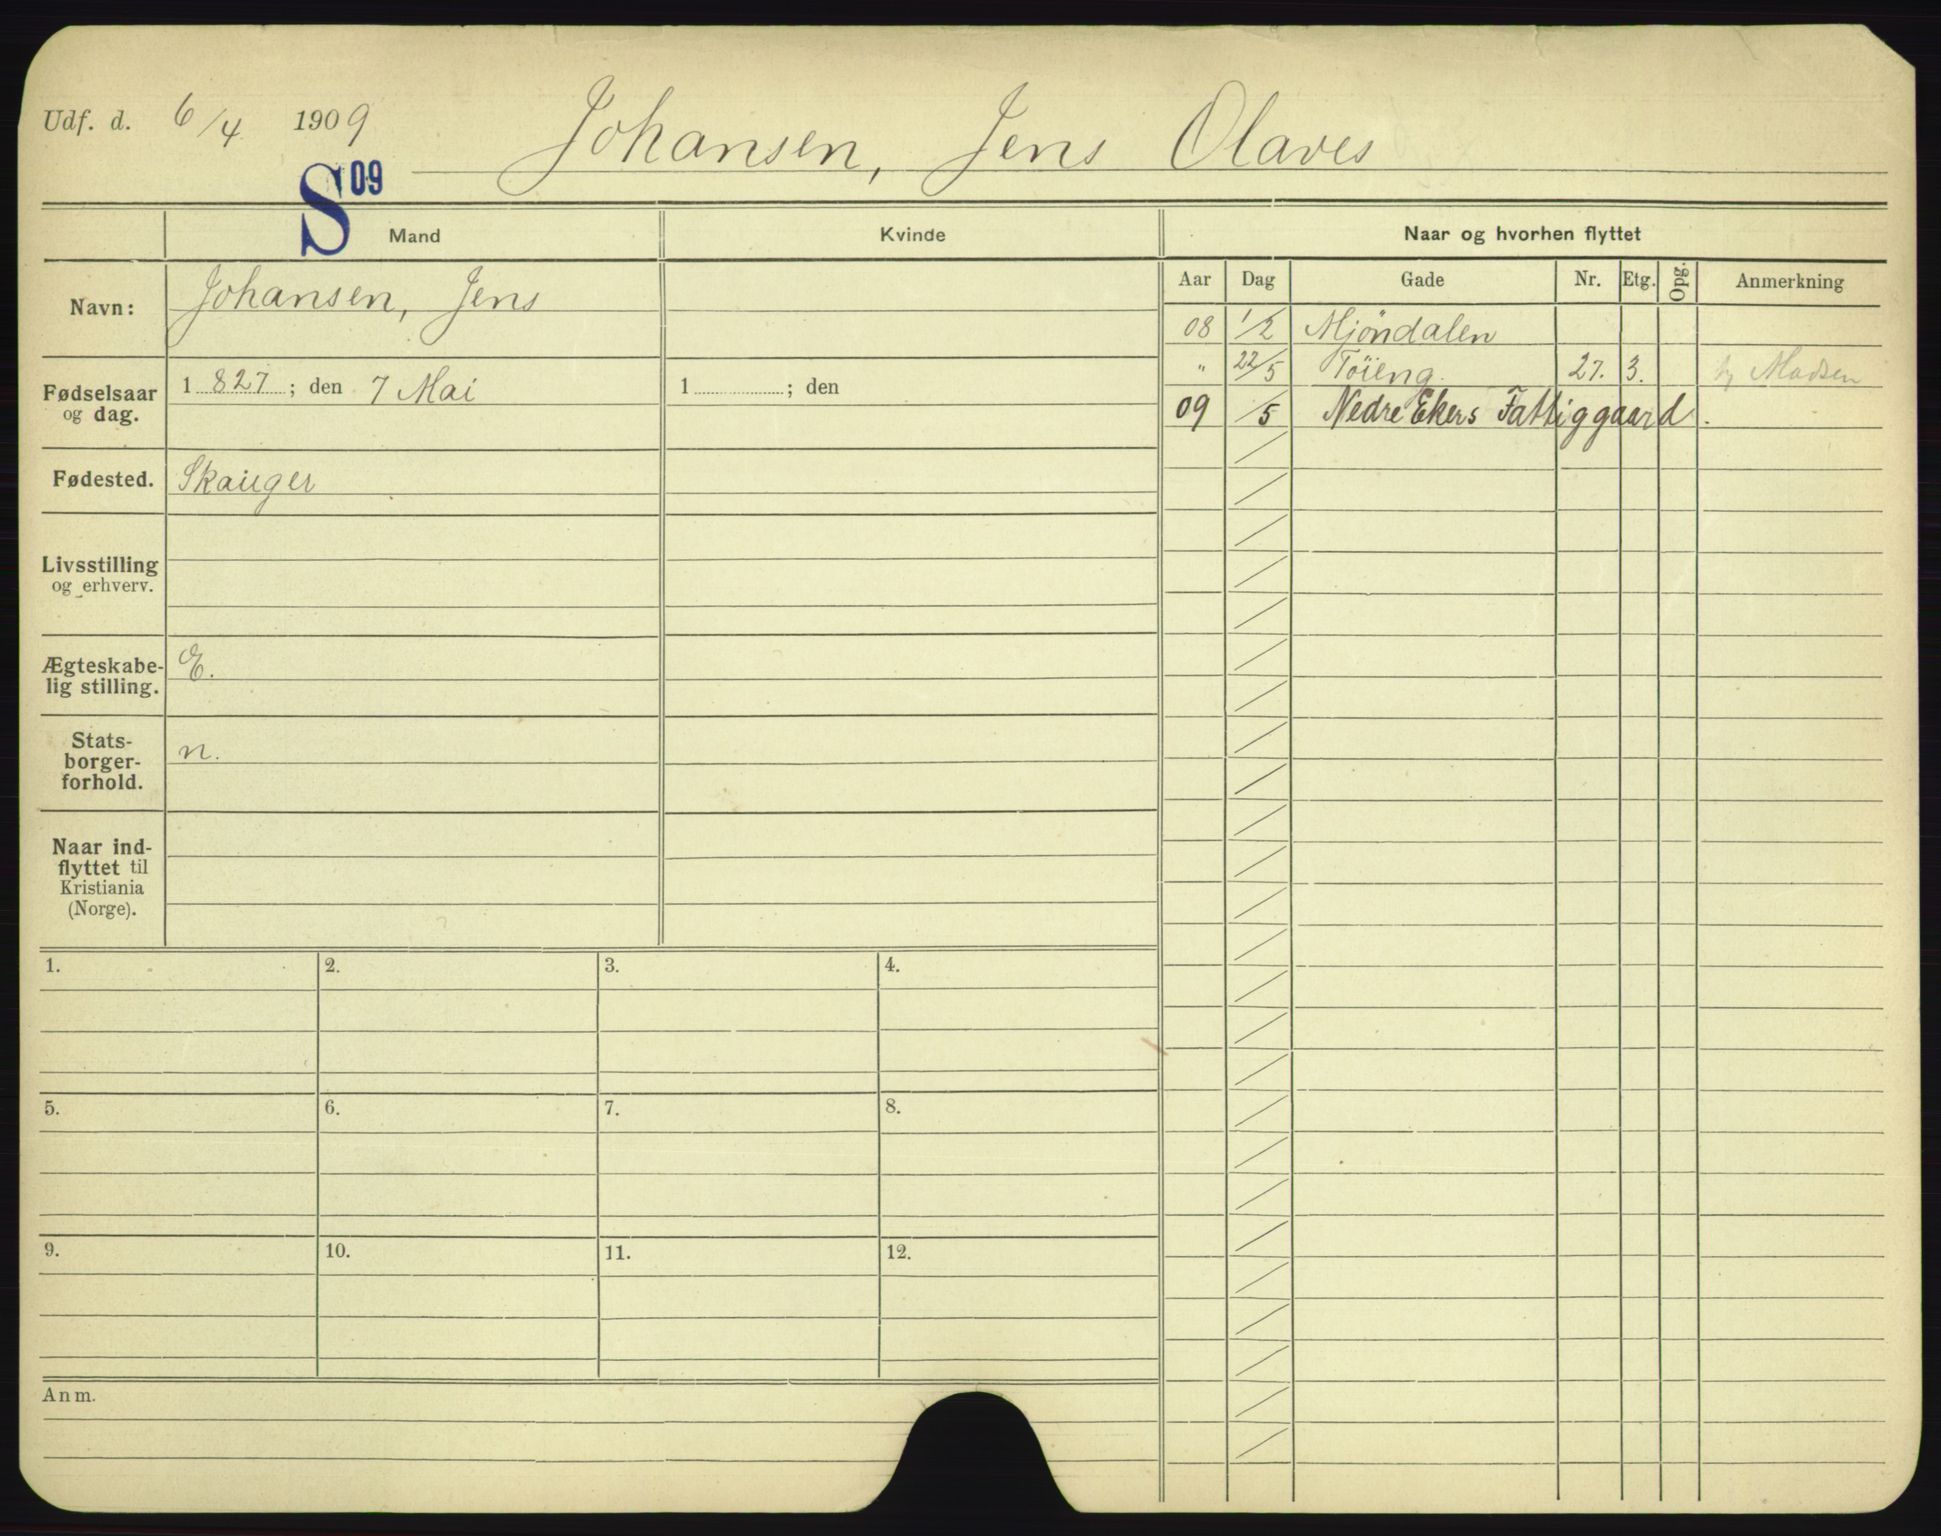 Udf. d. 6/4 1909
Johansen, Jens Olaves
S 09
Mand
Kvinde
Naar og hvorhen flyttet
Aar Dag Gade Nr. Etg. Opg. Anmerkning
Navn: Johansen, Jens
08 1/2 Mjöndalen
" 22/5 Töieng. 27. 3. Madsen
09 /5 Nedre Ekers Fattiggaard.
Fødselsaar
og dag.
1 827 ; den 7 Mai
1 ; den
Fødested. Skauger
Livsstilling
og erhverv.
Ægteskabe-
lig stilling.
E.
Stats-
borger-
forhold.
n.
Naar ind-
flyttet til
Kristiania
(Norge).
1. 2. 3. 4.
5. 6. 7. 8.
9. 10. 11. 12.
Anm.